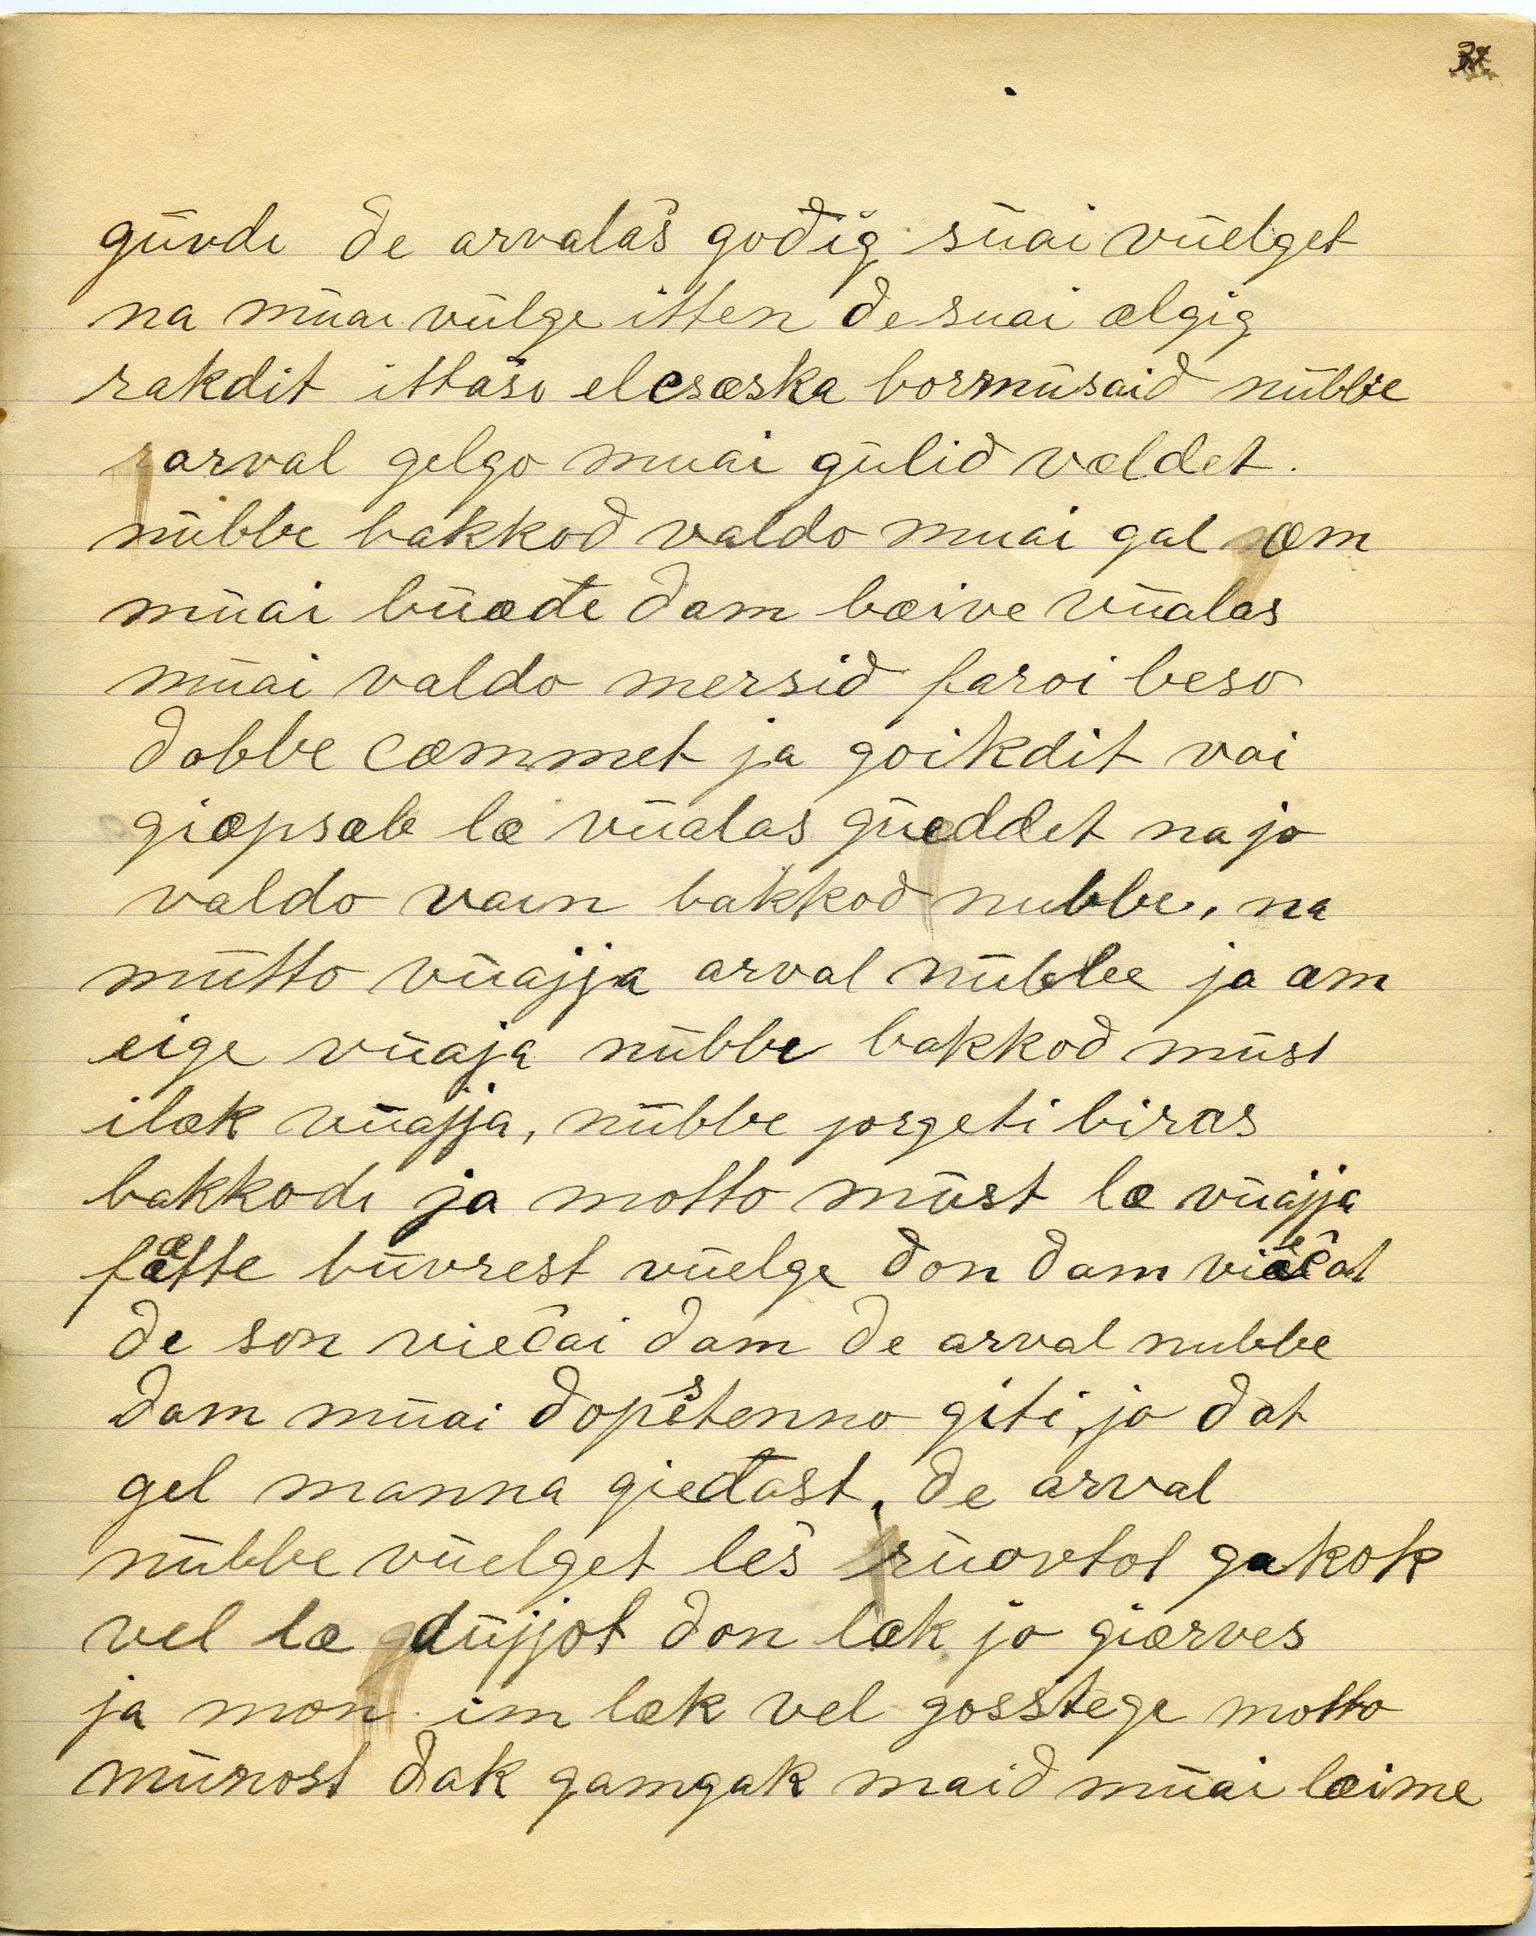 güvdi de arvalaš gođig süai vüelget
na müai vülge itten de suai ælgig
rakdit ittaši elesæska bormüsaid nübbe
arval gelgo muai gülid væddet.
nübbe bakkod valdo muai gal æm
müai büæđe dam bæive vüalas
müai valdo mersid faroi beso
dobbe cæmmet ja goikdit vai
giæpsæb læ vüalas güeddet na jo
valdo vain bakkod nubbe, na
mütto vüajja arval nübbe ja æm
eige vüaja nübbe bakkod müst
ilæk vüajja, nübbe jorgeti biras
bakkodi ja motto müst læ vüajja
fætte büvrest vüelge don dam viečat
de son viečai dam de arval nubbe
dam müai dopstenno giti, jo dat
gel manna gieđast. de arval
nübbe vüelget leš rüovtot gakok
vel læ düjjot don læk jo giærves
ja mon im læk vel gosstege motto
münost dak gamgak maid müai læime